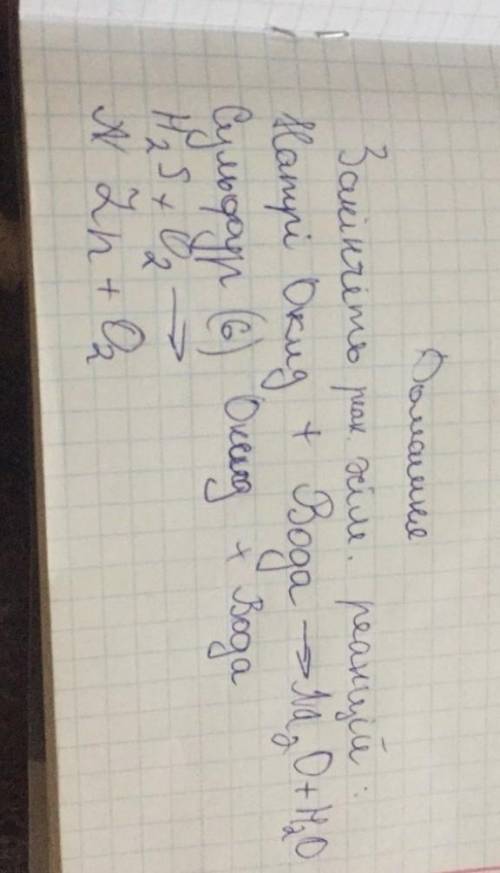 Домашня
Закінчіть реак. хім. реакцій:
Натрі Окид + Вода → Na₂O + H₂O
Сульфур (6) Оксид + Вода
H₂S + O₂ →
N Zn + O₂